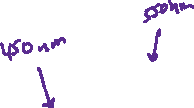 450nm
550nm